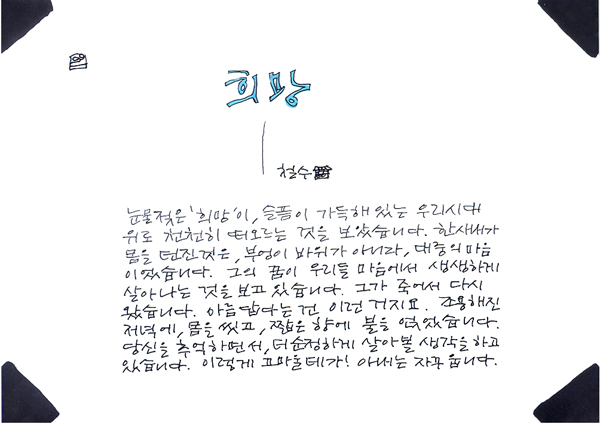 희망
철수
눈물젖은 '희망'이, 슬픔이 가득해 있는 우리시대
위로 천천히 떠오르는 것을 보았습니다. 한사내가
몸을 던진것은, 부엉이 바위가 아니라, 대중의 마음
이었습니다. 그의 꿈이 우리들 마음에서 생생하게
살아나는 것을 보고 있습니다. 그가 죽어서 다시
왔습니다. 아름답다는건 이런 거지요. 조용해진
저녁에, 몸을 씻고, 짧은 향에 불을 붙였습니다.
당신을 추억하면서, 더 순정하게 살아볼 생각을 하고
있습니다. 이렇게 고마울데가! 아내는 자꾸 웁니다.